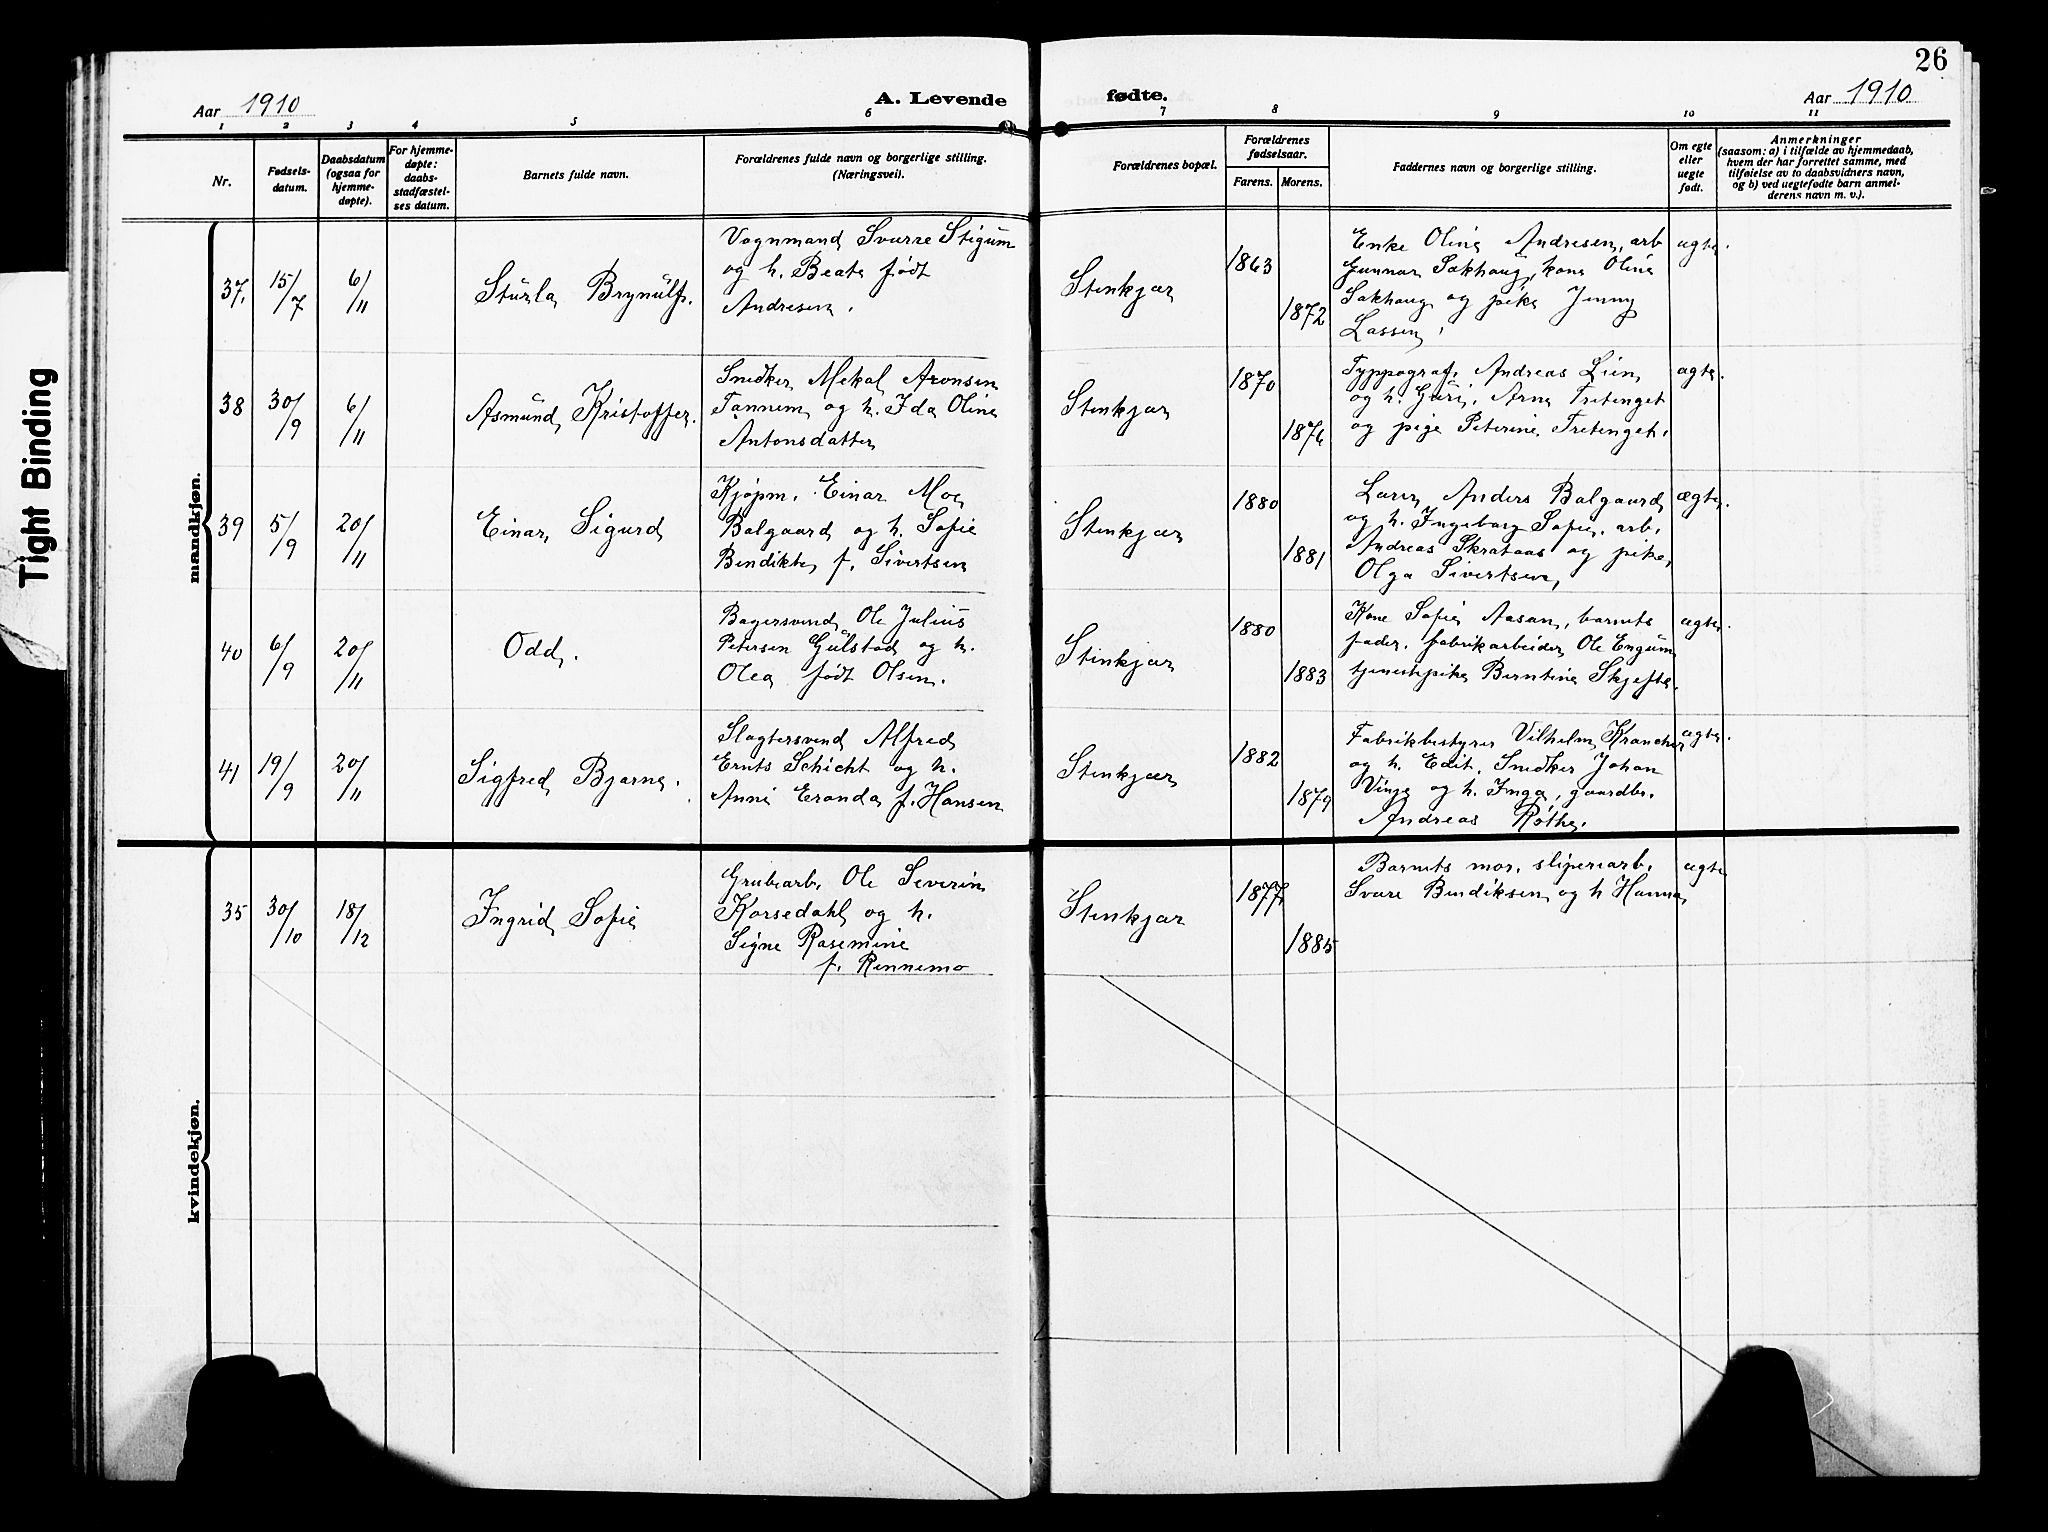 26
Aar 1910
A. Levende
fødte.
Aar 1910
1 2 3 4 5 6 7 8 9 10 11
Nr.
Fødsels-
datum.
Daabsdatum
(ogsaa for
hjemme-
døpte).
For hjemme-
døpte:
daabs-
stadfæstel-
ses datum.
Barnets fulde navn.
Forældrenes fulde navn og borgerlige stilling.
(Næringsvei).
Forældrenes bopæl.
Forældrenes
fødselsaar.
Farens. Morens.
Faddernes navn og borgerlige stilling.
Om egte
eller
uegte
født.
Anmerkninger
(saasom: a) i tilfælde av hjemmedaab,
hvem der har forrettet samme, med
tilføielse av to daabsvidners navn,
og b) ved uegtefødte barn anmel-
derens navn m. v.).
Tight Binding
mandkjøn.
37. 15/7 6/11
Sturla Brynulf.
Vognmand Svarre Stigum
og h. Beate født
Andresen.
Stenkjær
1863
1872
Enke Oline Andresen, arb
Gunnar Sakhaug, kone Oline
Sakhaug og pike Jenny
Lassen.
ægte.
38 30/9 6/11
Asmund Kristoffer.
Snedker Mekal Aronsen
Tannem og h. Ida Oline
Antonsdatter
Stenkjær
1870
1876
Typpograf Andreas Lien
og h. Guri. Arne Tretenget
og pige Peterine Tretenget.
ægte.
39 5/9 20/11
Einar Sigurd
Kjøpm. Einar Moe
Balgaard og h. Sofie
Bendikte f. Sivertsen
Stenkjær
1880
1881
Lærer Anders Balgaard
og h. Ingeborg Sofie. arb.
Andreas Skrataas og pike
Olga Sivertsen.
ægte.
40 6/9 20/11
Odd.
Bagersvend Ole Julius
Petersen Gulstad og h.
Olea født Olsen.
Stenkjær
1880
1883
Kone Sofie Aasan, barnets
fader. fabrikarbeider Ole Engum
tjenestepike Berntine Skjefte.
ægte.
41 19/9 20/11
Sigfred Bjarne.
Slagtersvend Alfred
Ernts Schicht og h.
Anne Eranda f. Hansen
Stenkjær
1882
1879
Fabrikbestyrer Vilhelm Krancher
og h. Edit. Snedker Johan
Vinje og h. Inga, gaardbr.
Andreas Røthe.
ægte.
kvindekjøn.
35 30/10 18/12
Ingrid Sofie
Grubearb. Ole Severin
Korsedahl og h.
Signe Rasemine
f. Rennemo
Stenkjær
1877
1885
Barnets mor. sliperiarb.
Svare Bendiksen og h Hanna
ægte